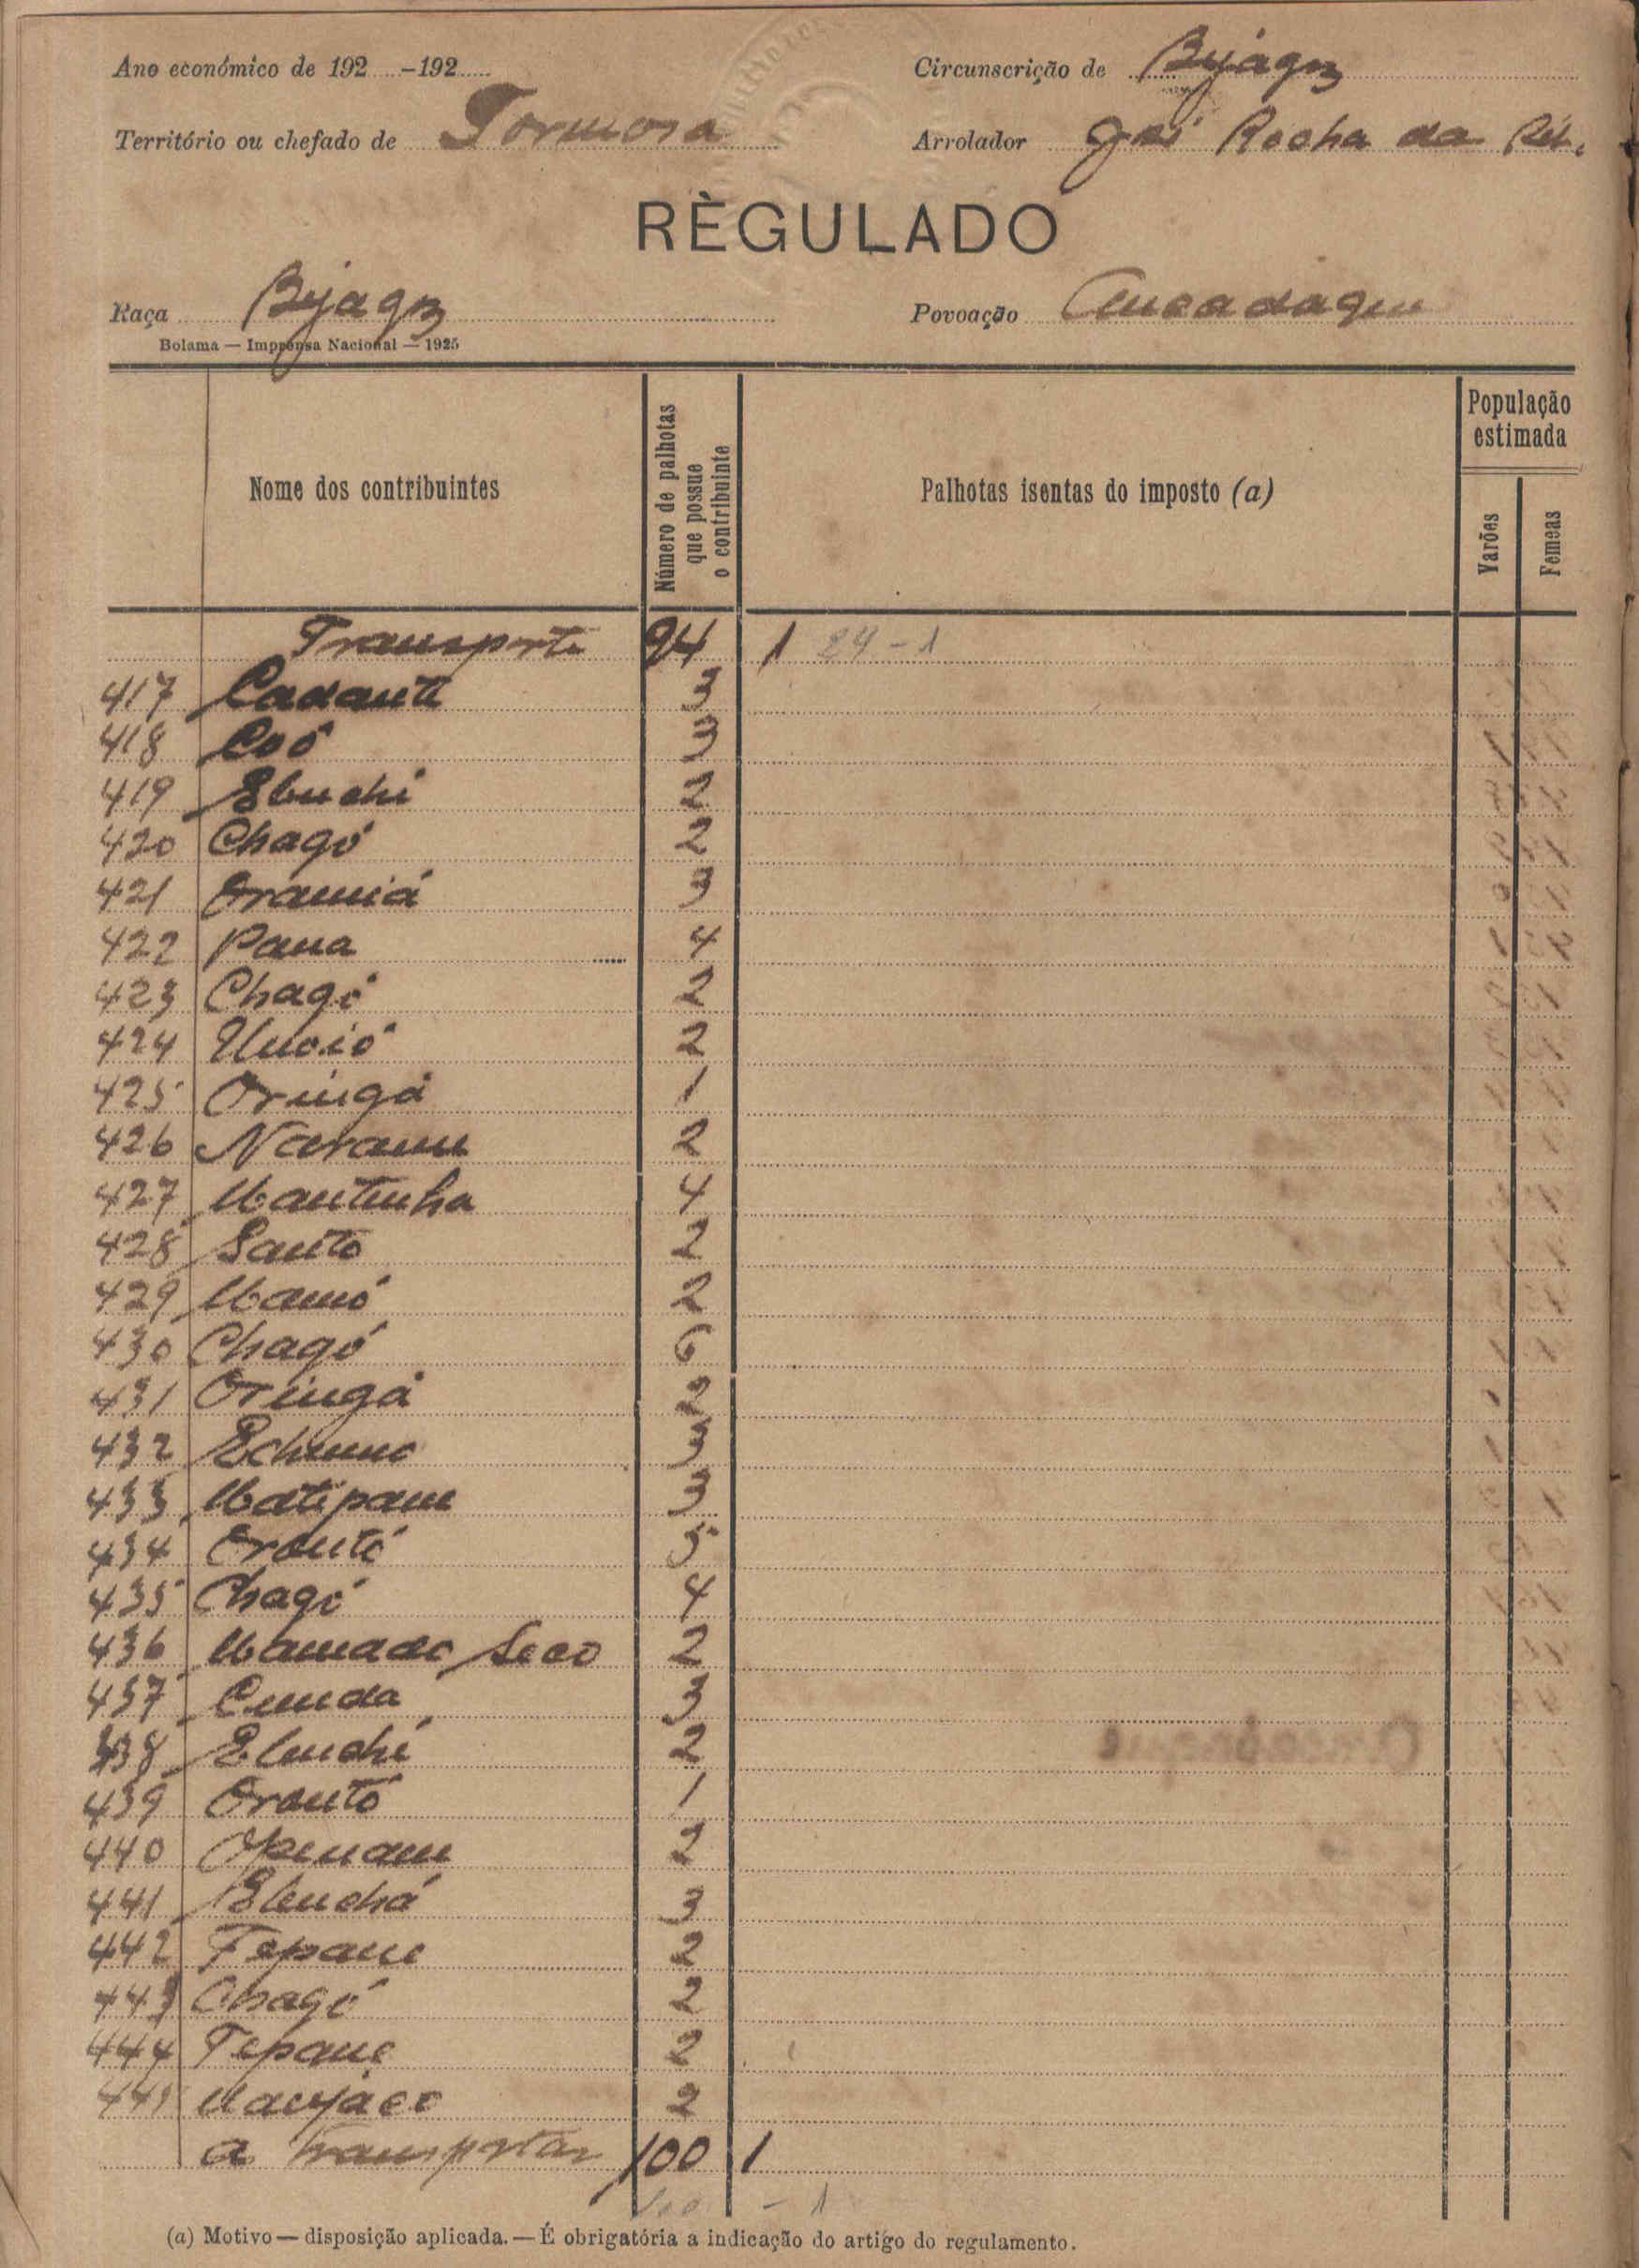 Ano económico de 192 -192
Circunscrição de Bijagoz
Território ou chefado de Formosa
Arrolador José Rocha da
RÈGULADO
Raça Bijagoz
Povoação Ancadaque
Bolama — Imprensa Nacional — 1925
Nome dos contribuintes
Número de palhotas que possue o contribuinte
Palhotas isentas do imposto (a)
População estimada
Varões
Femeas
Transporte 24 1 24-1
417 Cadanti 3
418 Coó 3
419 Ebuchi 2
420 Chagó 2
421 Oramiá 3
422 Pana 4
423 Chagó 2
424 2
425 Oringá 1
426 Narame 2
427 Mantenha 4
428 Santo 2
429 Mamó 2
430 Chagó 6
431 Oringá 2
432 3
433 Matipane 3
434 Orantó 5
435 Chagó 4
436 Mamado Seco 2
437 Cunda 3
438 2
439 Orantó 1
440 2
441 3
442 Tepane 2
443 Chagó 2
444 Tepane 2
445 2
a transportar 100 1
100 - 1
(a) Motivo — disposição aplicada. — É obrigatória a indicação do artigo do regulamento.